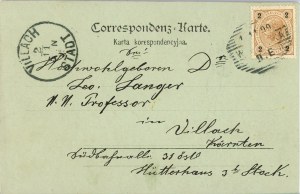 Correspondenz-Karte.
Karta korespondencyjna.
2 2
VILLACH
STADT
Wohlgeboren D
Leo Langer
k.k. Professor
in Villach
Kärnten
Südbahnstraße 31
Hütterhaus 3te Stock.